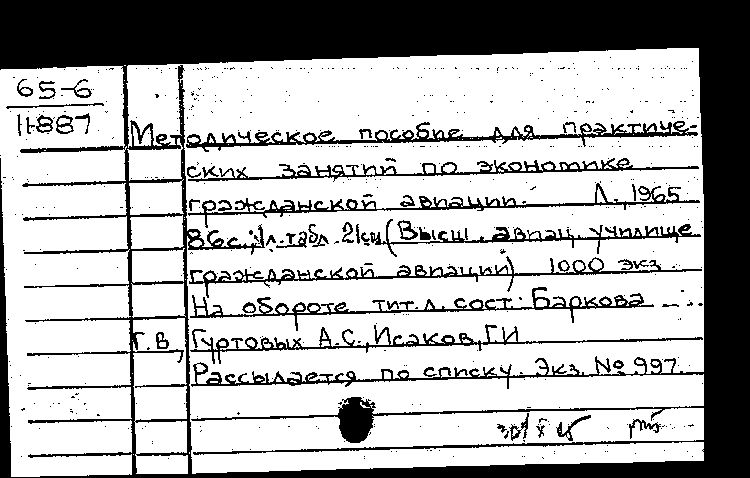 65-6
11887
Методическое пособие для практиче-
ских занятий по экономике
гражданской авиации. Л., 1965
86с.; 1л.табл. 21см. (Высш. авиац. училище
гражданской авиации) 1000 экз.
На обороте тит.л. сост: Баркова
Г.В., Гуртовых А.С., Исаков, Г.И
Рассылается по списку. Экз. № 997